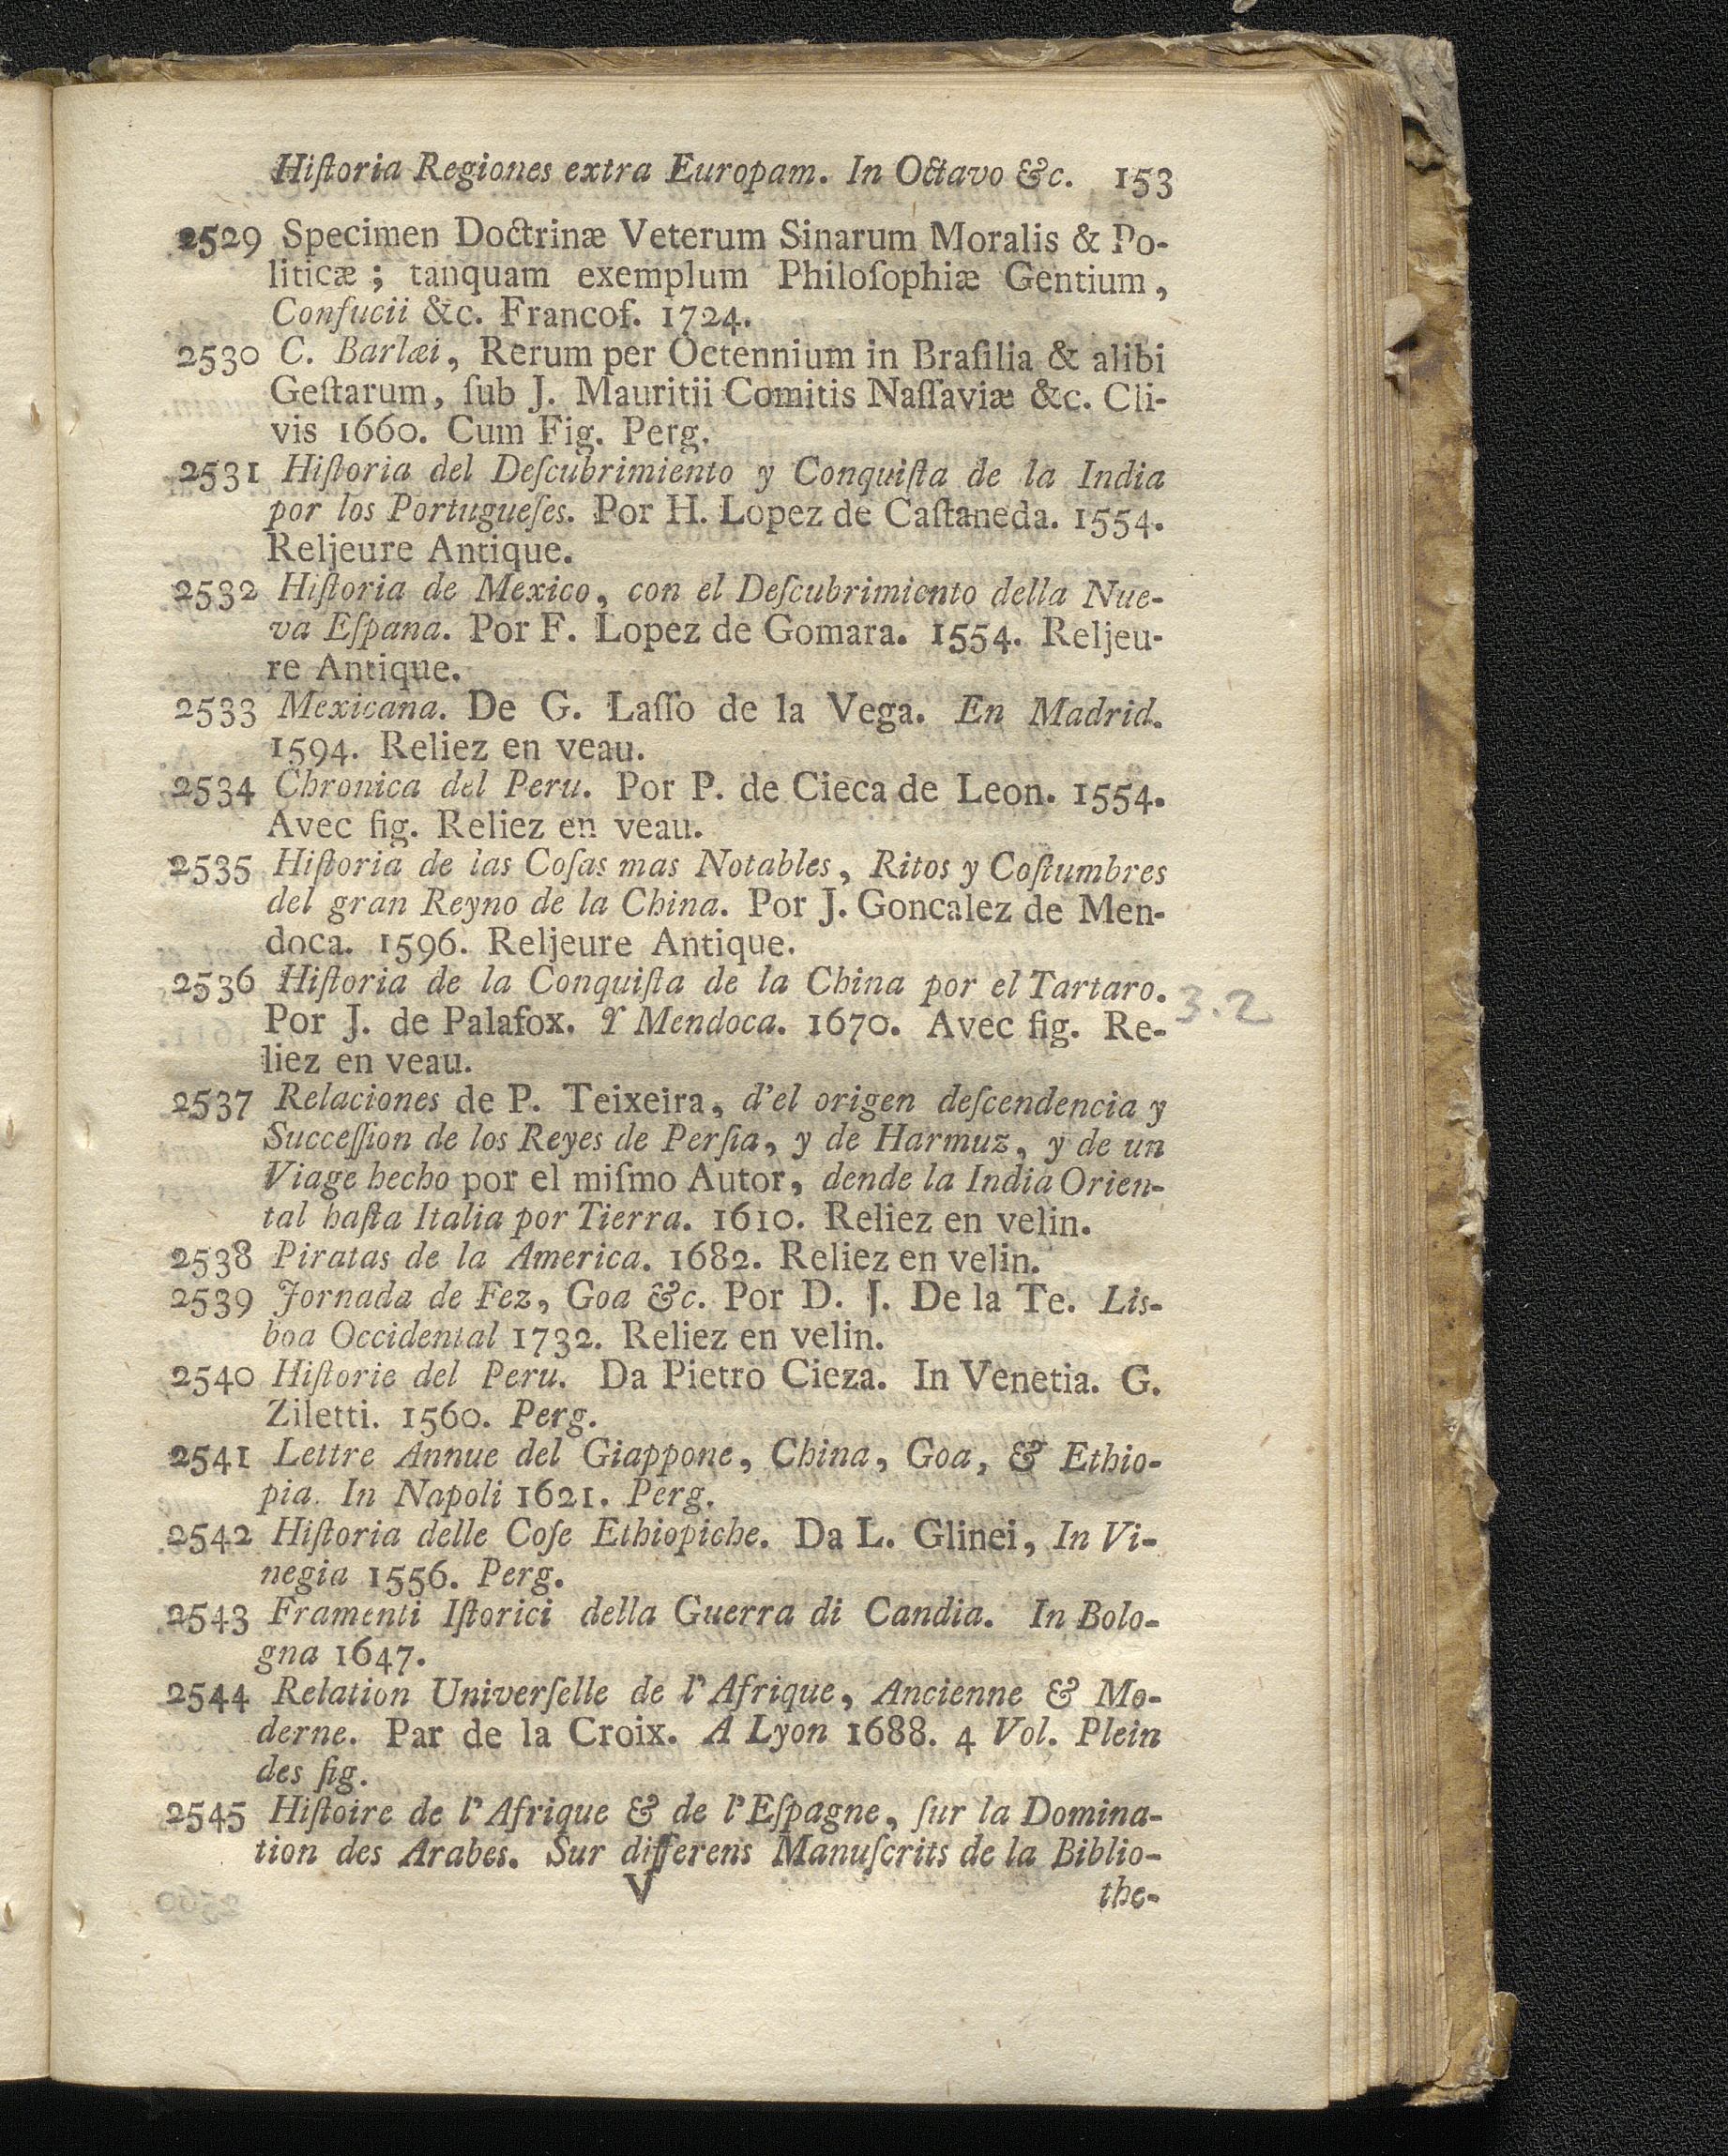 Hiſtoria Regiones extra Europam. In Octavo &c. 153
2529 Specimen Doctrinæ Veterum Sinarum Moralis & Po-
liticæ ; tanquam exemplum Philoſophiæ Gentium,
Confucii &c. Francof. 1724.
2530 C. Barlæi, Rerum per Octennium in Braſilia & alibi
Geſtarum, ſub J. Mauritii Comitis Naſſaviæ &c. Cli-
vis 1660. Cum Fig. Perg.
2531 Hiſtoria del Deſcubrimiento y Conquiſta de la India
por los Portugueſes. Por H. Lopez de Caſtaneda. 1554.
Reljeure Antique.
2532 Hiſtoria de Mexico, con el Deſcubrimiento della Nue-
va Eſpana. Por F. Lopez de Gomara. 1554. Reljeu-
re Antique.
2533 Mexicana. De G. Laſſo de la Vega. En Madrid.
1594. Reliez en veau.
2534 Chronica del Peru. Por P. de Cieca de Leon. 1554.
Avec fig. Reliez en veau.
2535 Hiſtoria de las Coſas mas Notables, Ritos y Coſtumbres
del gran Reyno de la China. Por J. Goncalez de Men-
doca. 1596. Reljeure Antique.
2536 Hiſtoria de la Conquiſta de la China por el Tartaro. 3.2
Por J. de Palafox. Y Mendoca. 1670. Avec fig. Re-
liez en veau.
2537 Relaciones de P. Teixeira, d'el origen deſcendencia y
Succeſſion de los Reyes de Perſia, y de Harmuz, y de un
Viage hecho por el miſmo Autor, dende la India Orien-
tal haſta Italia por Tierra. 1610. Reliez en velin.
2538 Piratas de la America. 1682. Reliez en velin.
2539 Jornada de Fez, Goa &c. Por D. J. De la Te. Lis-
boa Occidental 1732. Reliez en velin.
2540 Hiſtorie del Peru. Da Pietro Cieza. In Venetia. G.
Ziletti. 1560. Perg.
2541 Lettre Annue del Giappone, China, Goa, & Ethio-
pia. In Napoli 1621. Perg.
2542 Hiſtoria delle Coſe Ethiopiche. Da L. Glinei, In Vi-
negia 1556. Perg.
2543 Framenti Iſtorici della Guerra di Candia. In Bolo-
gna 1647.
2544 Relation Univerſelle de l'Afrique, Ancienne & Mo-
derne. Par de la Croix. A Lyon 1688. 4 Vol. Plein
des fig.
2545 Hiſtoire de l'Afrique & de l'Eſpagne, ſur la Domina-
tion des Arabes. Sur differens Manuſcrits de la Biblio-
V the-